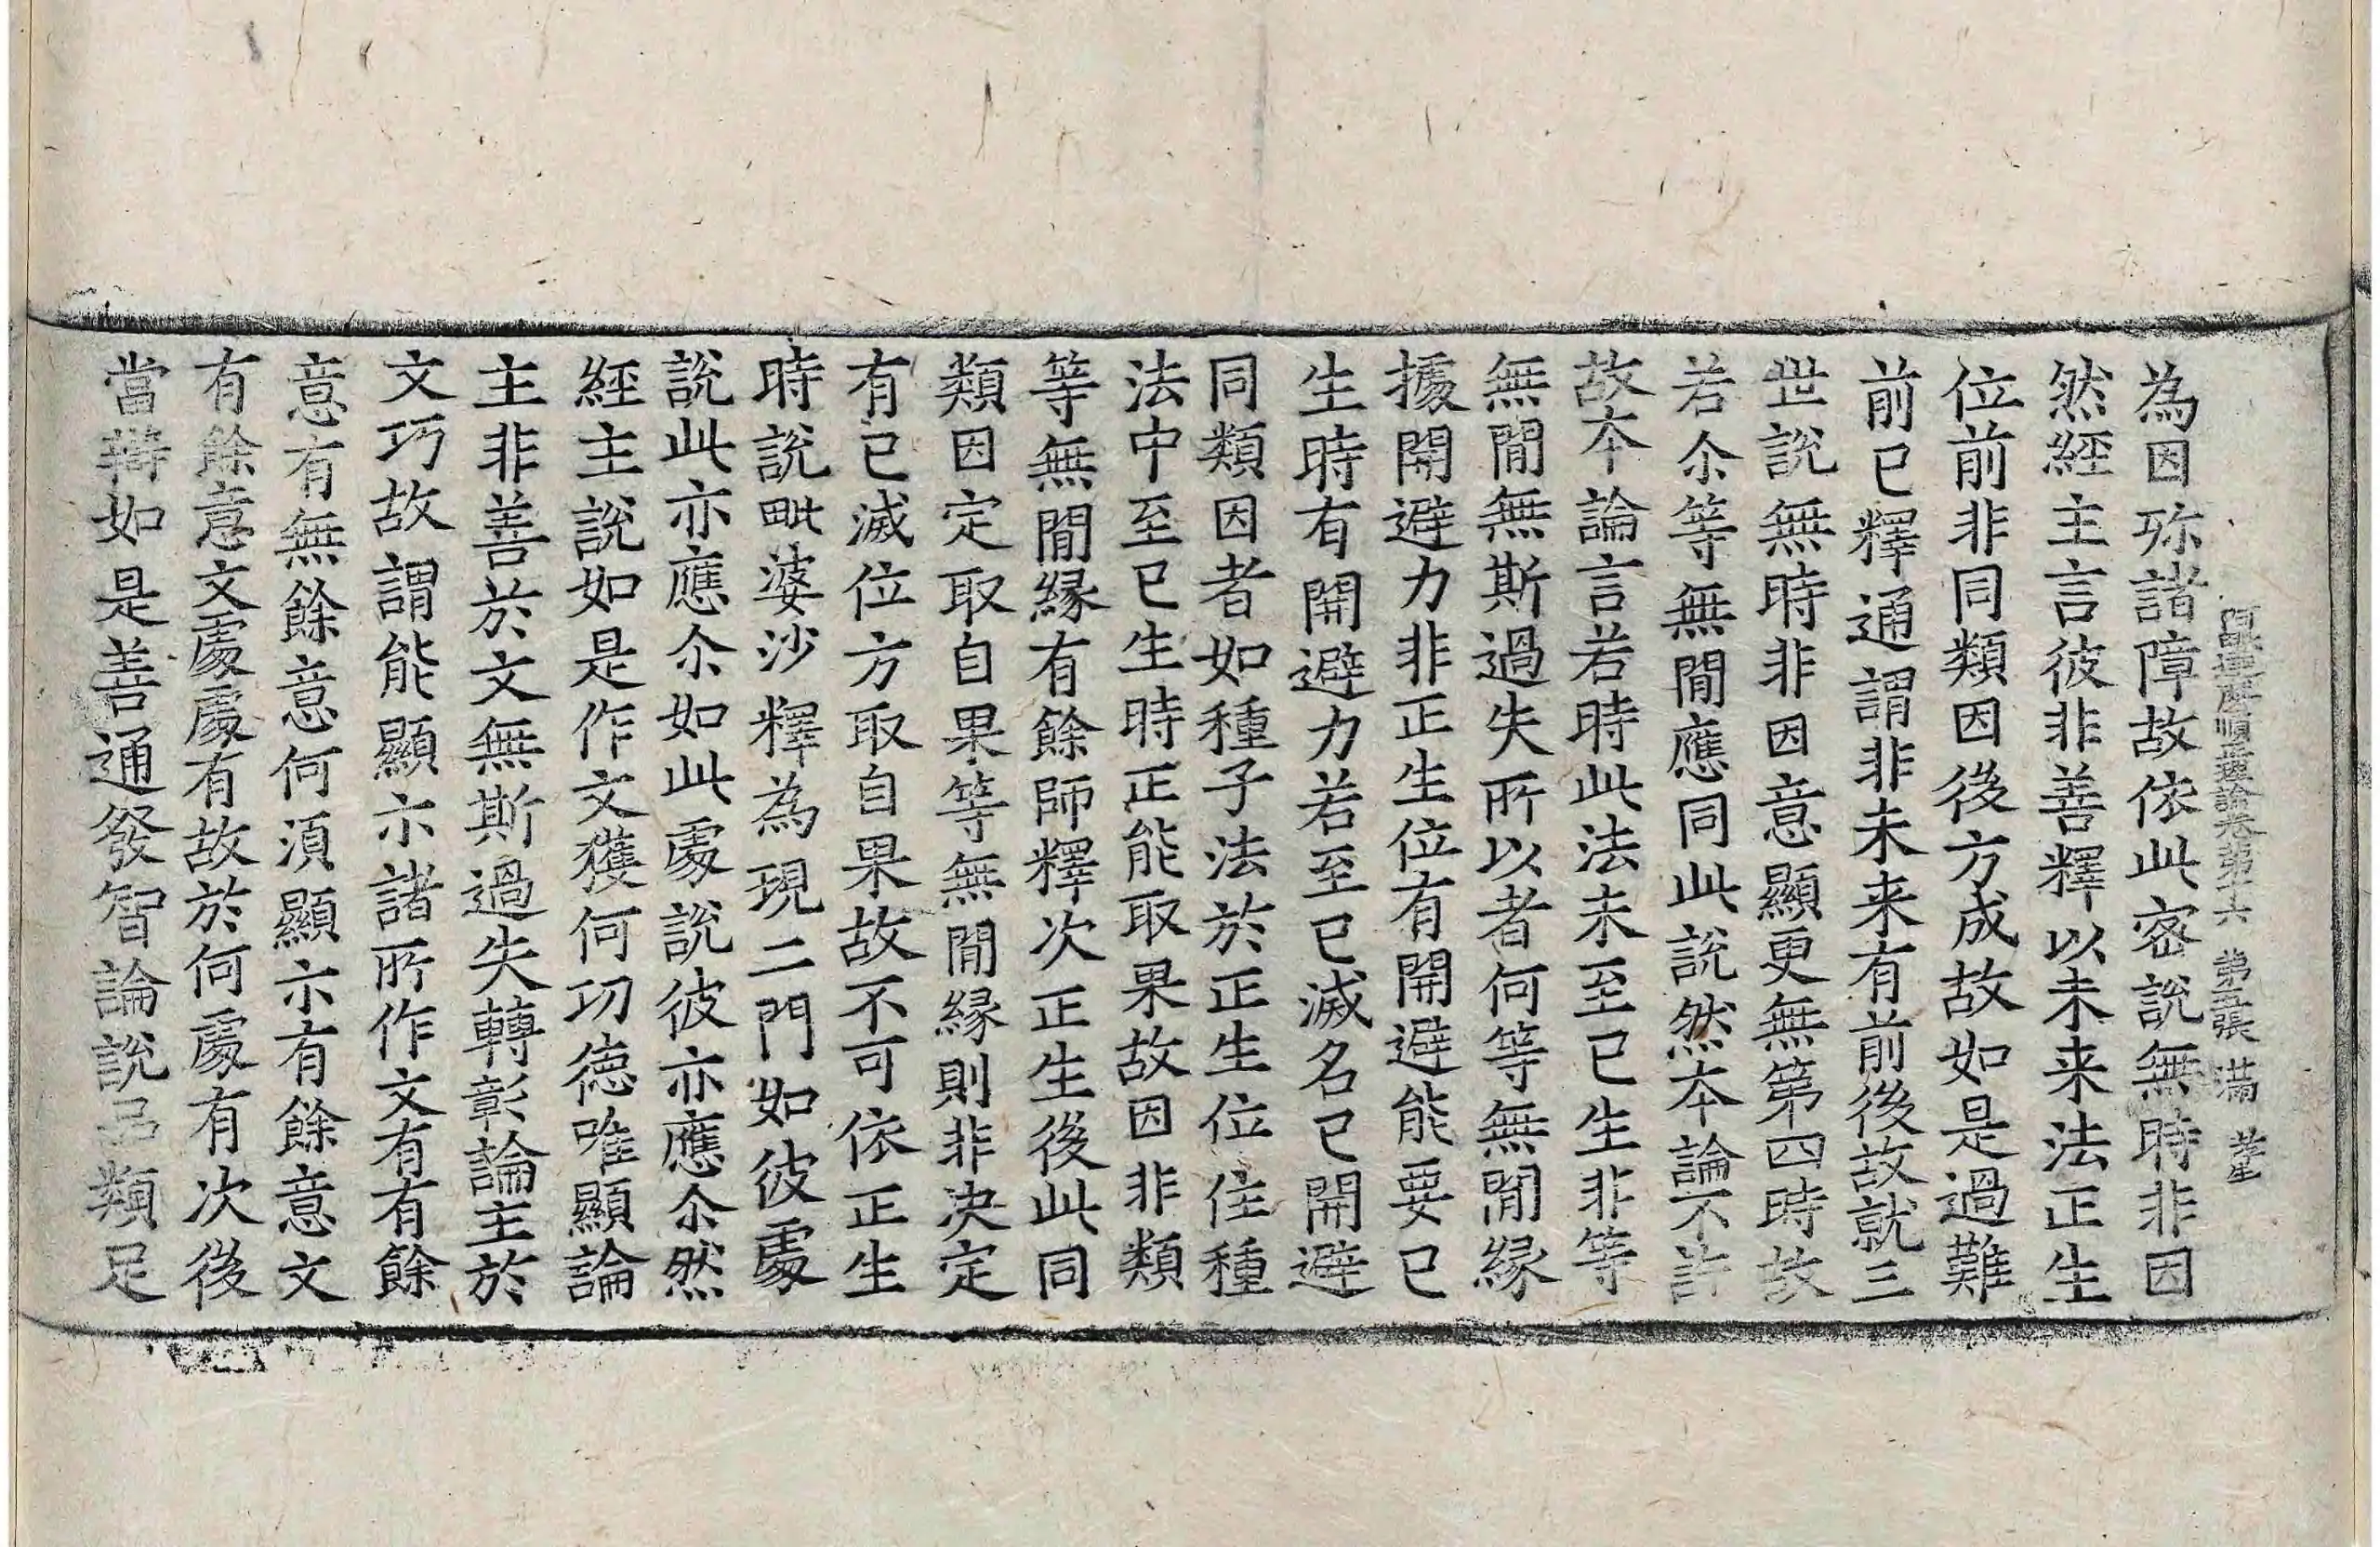 阿毗達磨順正理論卷第十六 第五張 滿
為因祢諸障故依此密說無時非因
然經主言彼非善釋以未来法正生
位前非同類因後方成故如是過難
前已釋通謂非未来有前後故就三
世說無時非因意顯更無第四時故
若尒等無閒應同此說然本論不許
故本論言若時此法未至已生非等
無閒無斯過失所以者何等無閒緣
據開避力非正生位有開避能要已
生時有開避力若至已滅名已開避
同類因者如種子法於正生位住種
法中至已生時正能取果故因非類
等無閒緣有餘師釋次正生後此同
類因定取自果等無閒緣則非決定
有已滅位方取自果故不可依正生
時說毗婆沙釋為現二門如彼處
說此亦應尒如此處說彼亦應尒然
經主說如是作文獲何功德唯顯論
主非善於文無斯過失轉彰論主於
文巧故謂能顯示諸所作文有有餘
意有無餘意何湏顯示有餘意文
有餘意文處處有故於何處有次後
當辯如是善通發智論說品類足